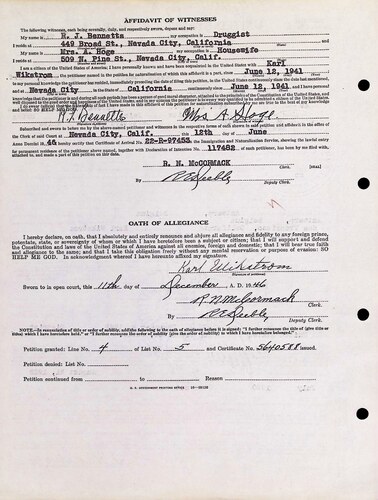 AFFIDAVIT OF WITNESSES
The following witnesses, each being severally, duly, and respectively sworn, depose and say:
My name is N. J. Bennetts, my occupation is Druggist
I reside at 449 Broad St., Nevada City, California
My name is Mrs. A. Hoge, my occupation is Housewife
I reside at 509 N. Pine St., Nevada City, Calif.
I am a citizen of the United States of America; I have personally known and have been acquainted in the United States with Karl
Wikstrom, the petitioner named in the petition for naturalization of which this affidavit is a part, since June 12, 1941
to my personal knowledge the petitioner has resided, immediately preceding the date of filing this petition, in the United States continuously since the date last mentioned,
and at Nevada City, in the State of California continuously since June 12, 1941, and I have personal
N. J. Bennetts Mrs A. Hoge
Subscribed and sworn to before me by the above-named petitioner and witnesses in the respective forms of oath shown above in the office of the
Clerk of said Court at Nevada City, Calif. this 12th day of June
Anno Domini 19 46 I hereby certify that Certificate of Arrival No. 22-R-27453 from the Immigration and Naturalization Service, showing the lawful entry
for permanent residence of the petitioner above named, together with Declaration of Intention No. 117482 of such petitioner, has been by me filed with,
attached to, and made a part of this petition on this date.
R. N. McCORMACK
Clerk. [SEAL]
By
Deputy Clerk.
OATH OF ALLEGIANCE
I hereby declare, on oath, that I absolutely and entirely renounce and abjure all allegiance and fidelity to any foreign prince,
potentate, state, or sovereignty of whom or which I have heretofore been a subject or citizen; that I will support and defend
the Constitution and laws of the United States of America against all enemies, foreign and domestic; that I will bear true faith
and allegiance to the same; and that I take this obligation freely without any mental reservation or purpose of evasion: SO
HELP ME GOD. In acknowledgment whereof I have hereunto affixed my signature.
Karl Wikstrom
Sworn to in open court, this 11th day of December, A. D. 1946
R. N. McCormack
Clerk.
By
Deputy Clerk.
NOTE.—In renunciation of title or order of nobility, add the following to the oath of allegiance before it is signed: "I further renounce the title of (give title or
titles) which I have heretofore held," or "I further renounce the order of nobility (give the order of nobility) to which I have heretofore belonged."
Petition granted: Line No. 4 of List No. 5 and Certificate No. 5640588 issued.
Petition denied: List No.
Petition continued from to Reason
U. S. GOVERNMENT PRINTING OFFICE